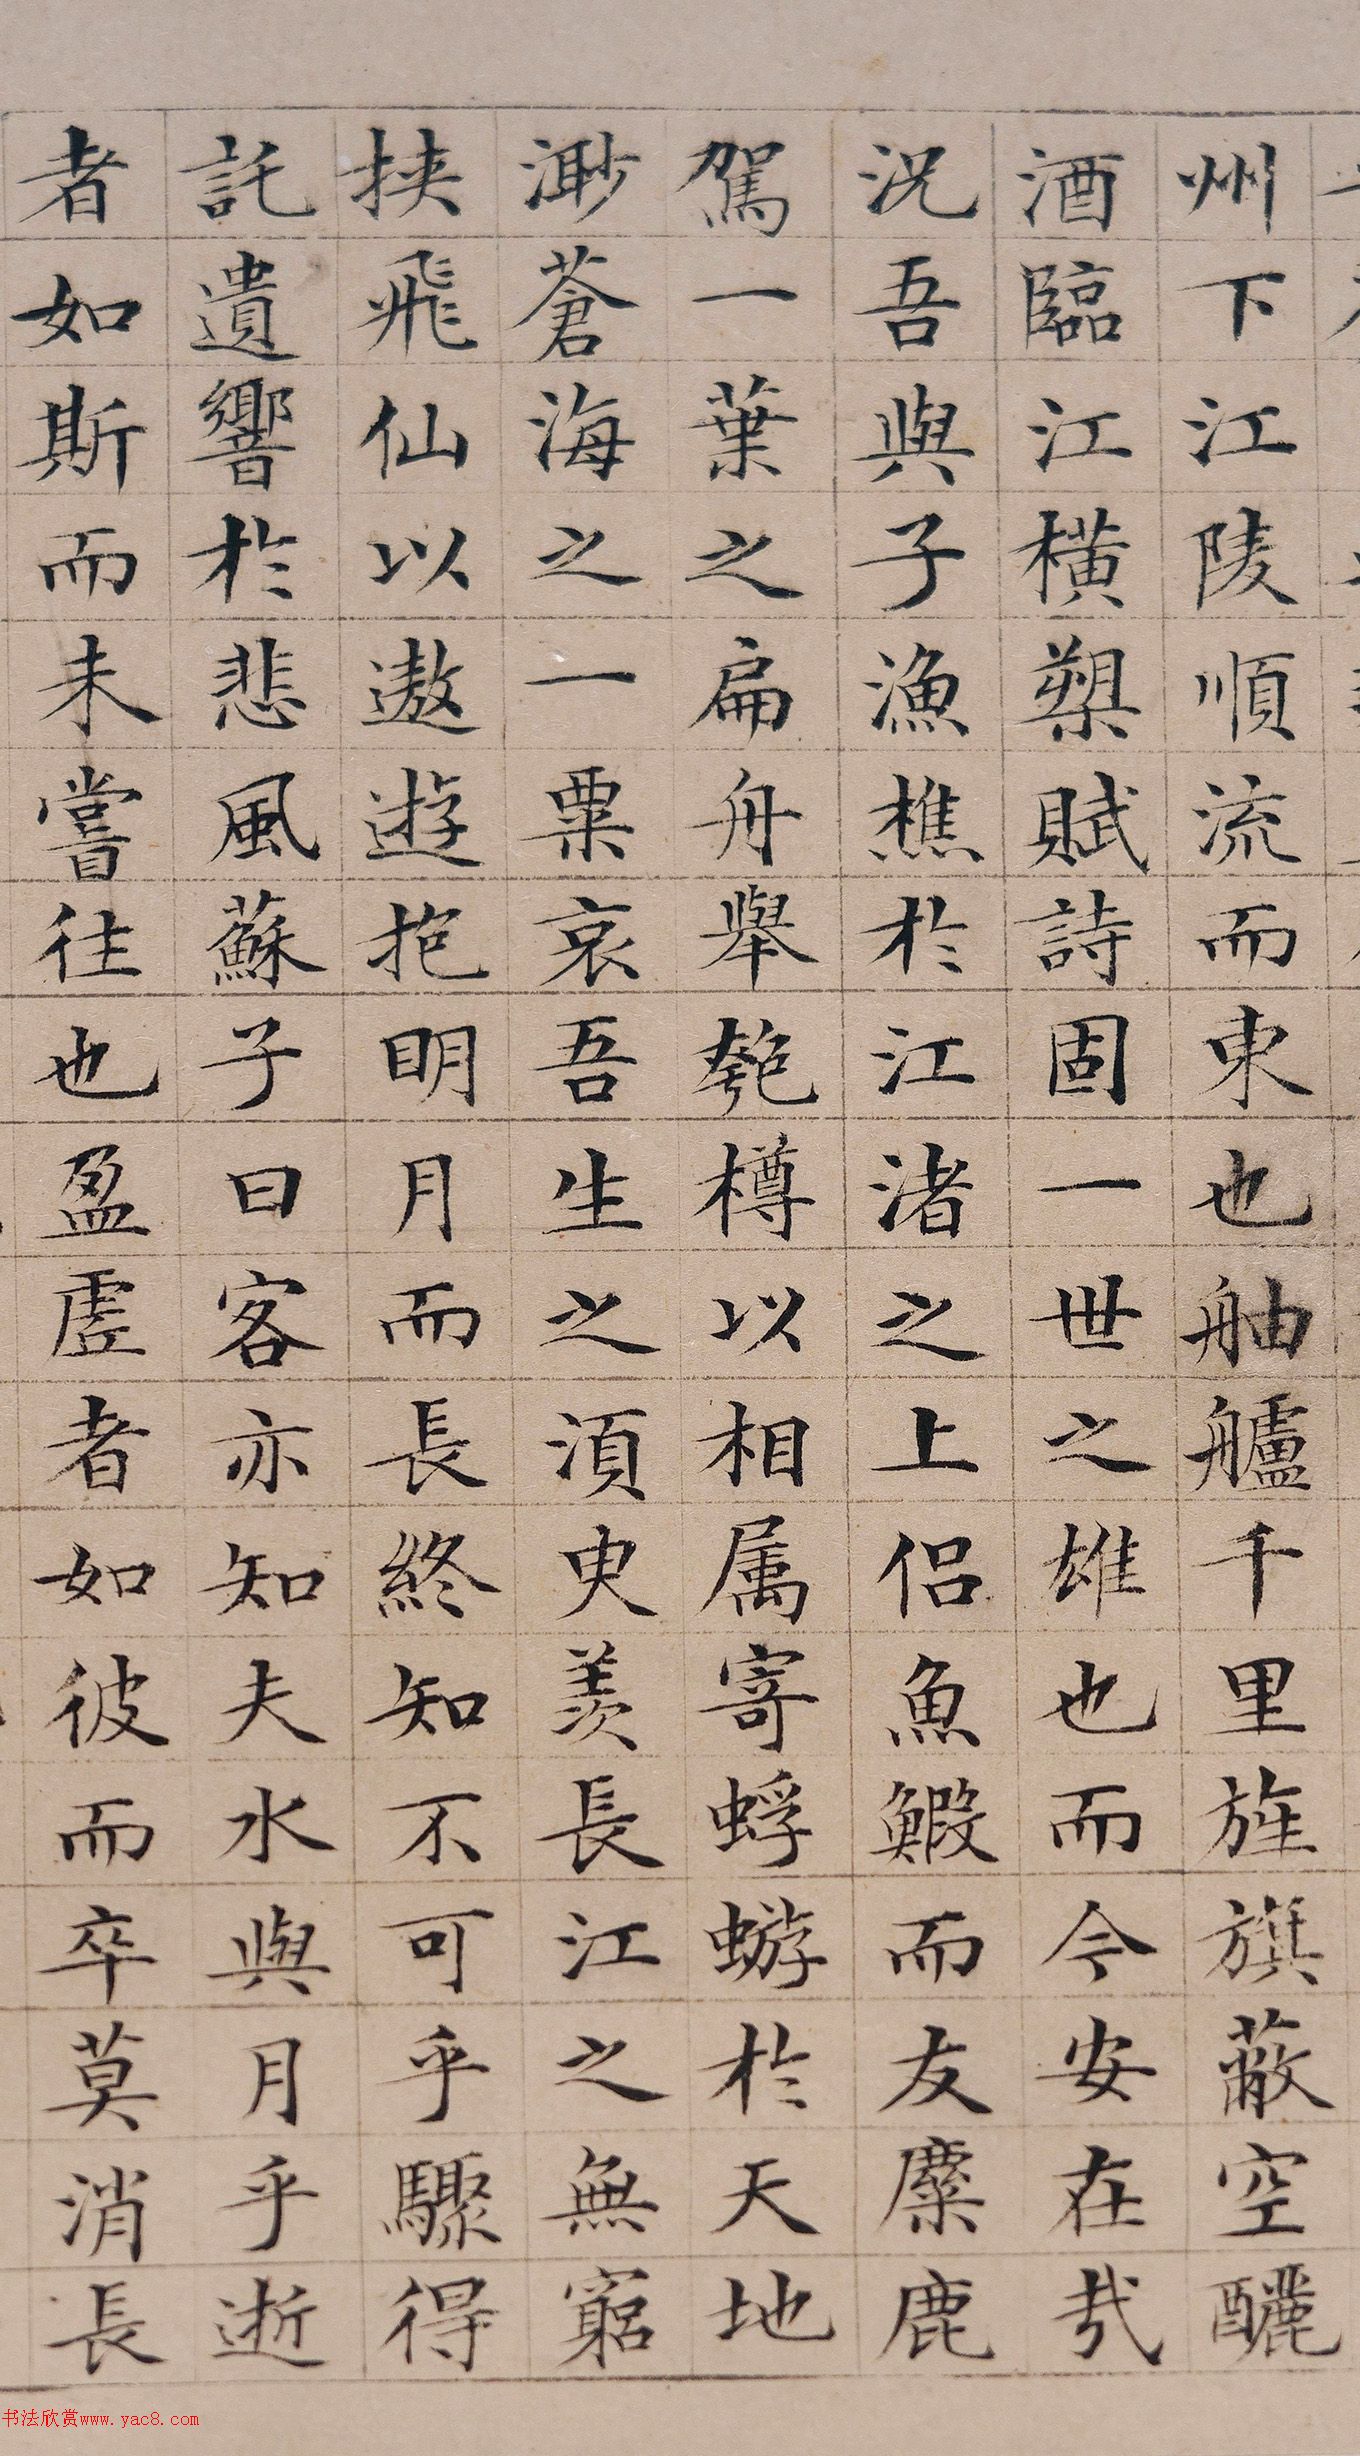 州下江陵順流而東也舳艫千里旌旗蔽空釃
酒臨江橫槊賦詩固一世之雄也而今安在哉
況吾與子漁樵於江渚之上侶魚鰕而友麋鹿
駕一葉之扁舟舉匏樽以相属寄蜉蝣於天地
渺蒼海之一粟哀吾生之須臾羨長江之無窮
挾飛仙以遨遊抱明月而長終知不可乎驟得
託遺響於悲風蘇子曰客亦知夫水與月乎逝
者如斯而未嘗往也盈虛者如彼而卒莫消長
书法欣赏www.yac8.com